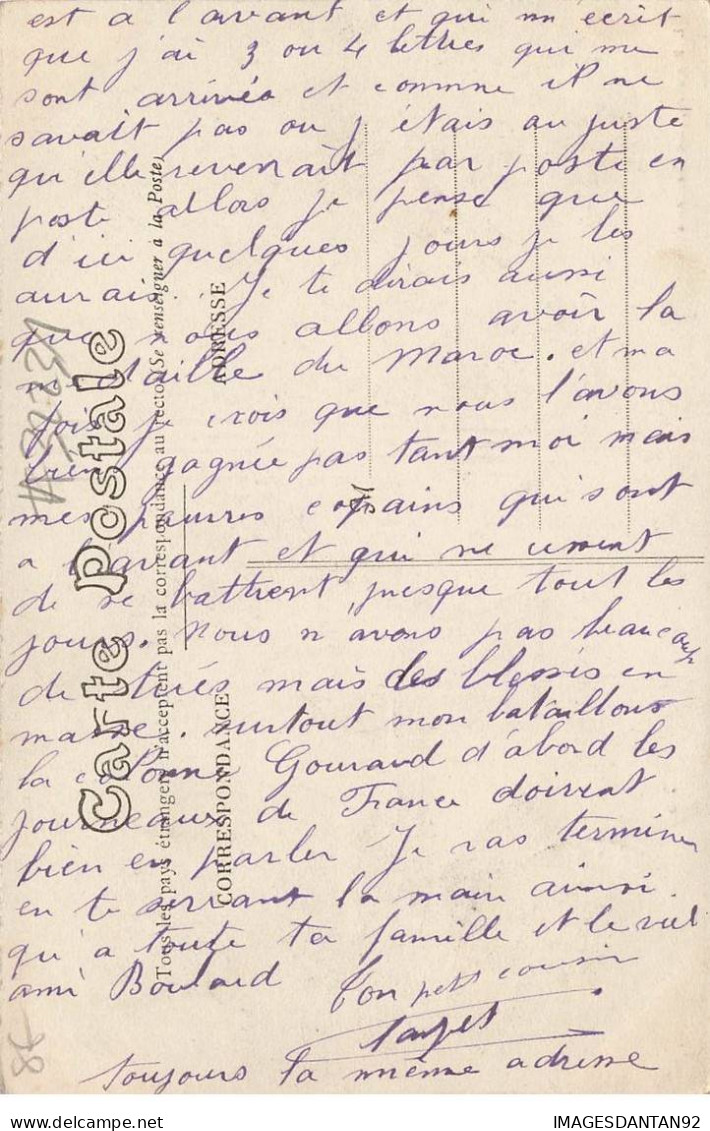 est a l'avant et qui m'écrit
que j'ai 3 ou 4 lettres qui me
sont arrivéa et comme il ne
savait pas ou j'étais au juste
qu'elle revenait par poste en
poste allors je pense que
d'ici quelques jours je les
aurais. Je te dirais aussi
que nous allons avoir la
médaille du Maroc. et ma
fois je crois que nous l'avons
bien gagnée pas tant moi mais
mes pauvres copains qui sont
a l'avant et qui ne
de se battrent presque tout les
jours. Nous n'avons pas beaucoup
de tués mais des blessés en
masse. surtout mon bataillons
la colonne Gouraud d'abord les
journeaux de France doivent
bien en parler Je vas terminer
en te serrant la main ainsi
qu'a toute ta famille et le vieil
ami Boulard Ton petit cousin
toujours la même adresse
Carte Postale
Tous les pays étrangers n'acceptent pas la correspondance au recto (Se renseigner à la Poste)
CORRESPONDANCE
ADRESSE
IMAGESDANTAN92